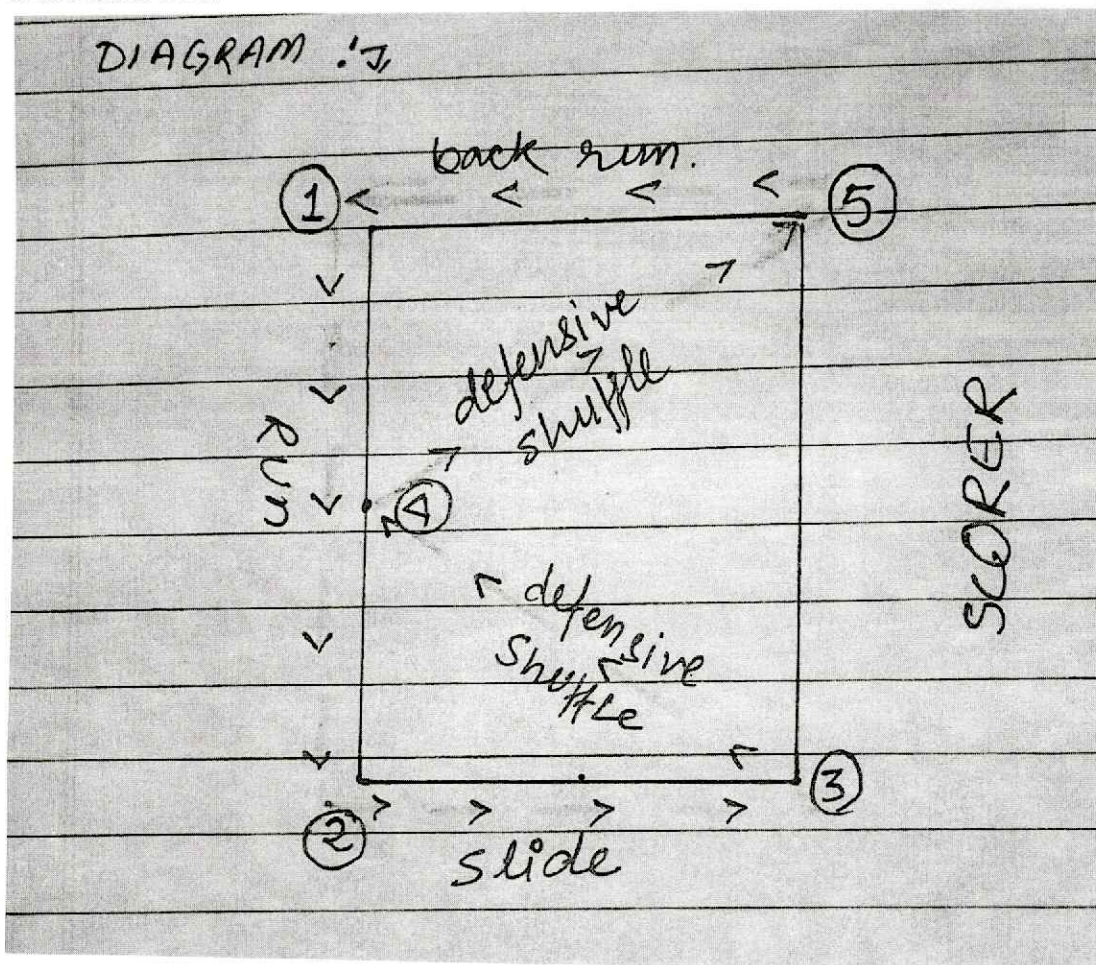 DIAGRAM :-
back run.
1
5
defensive
shuffle
Run
4
SCORER
defensive
Shuffle
3
2
slide